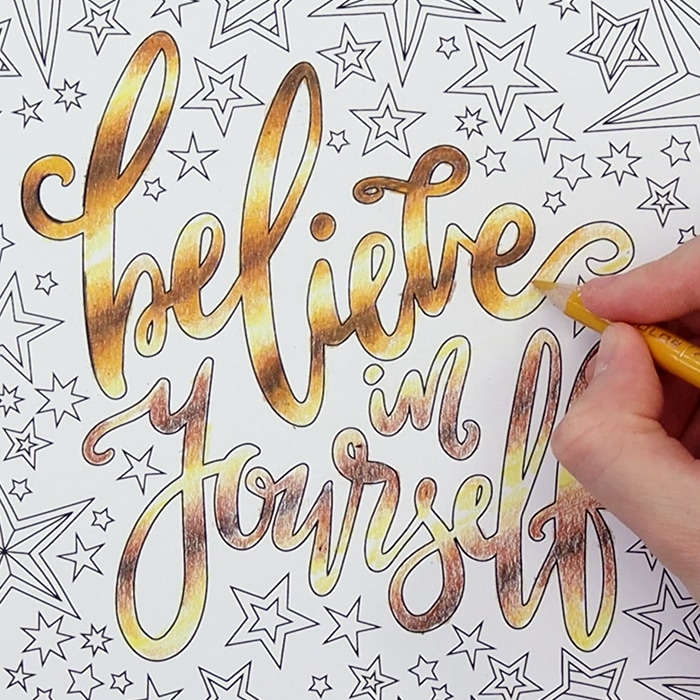 believe
in
yourself